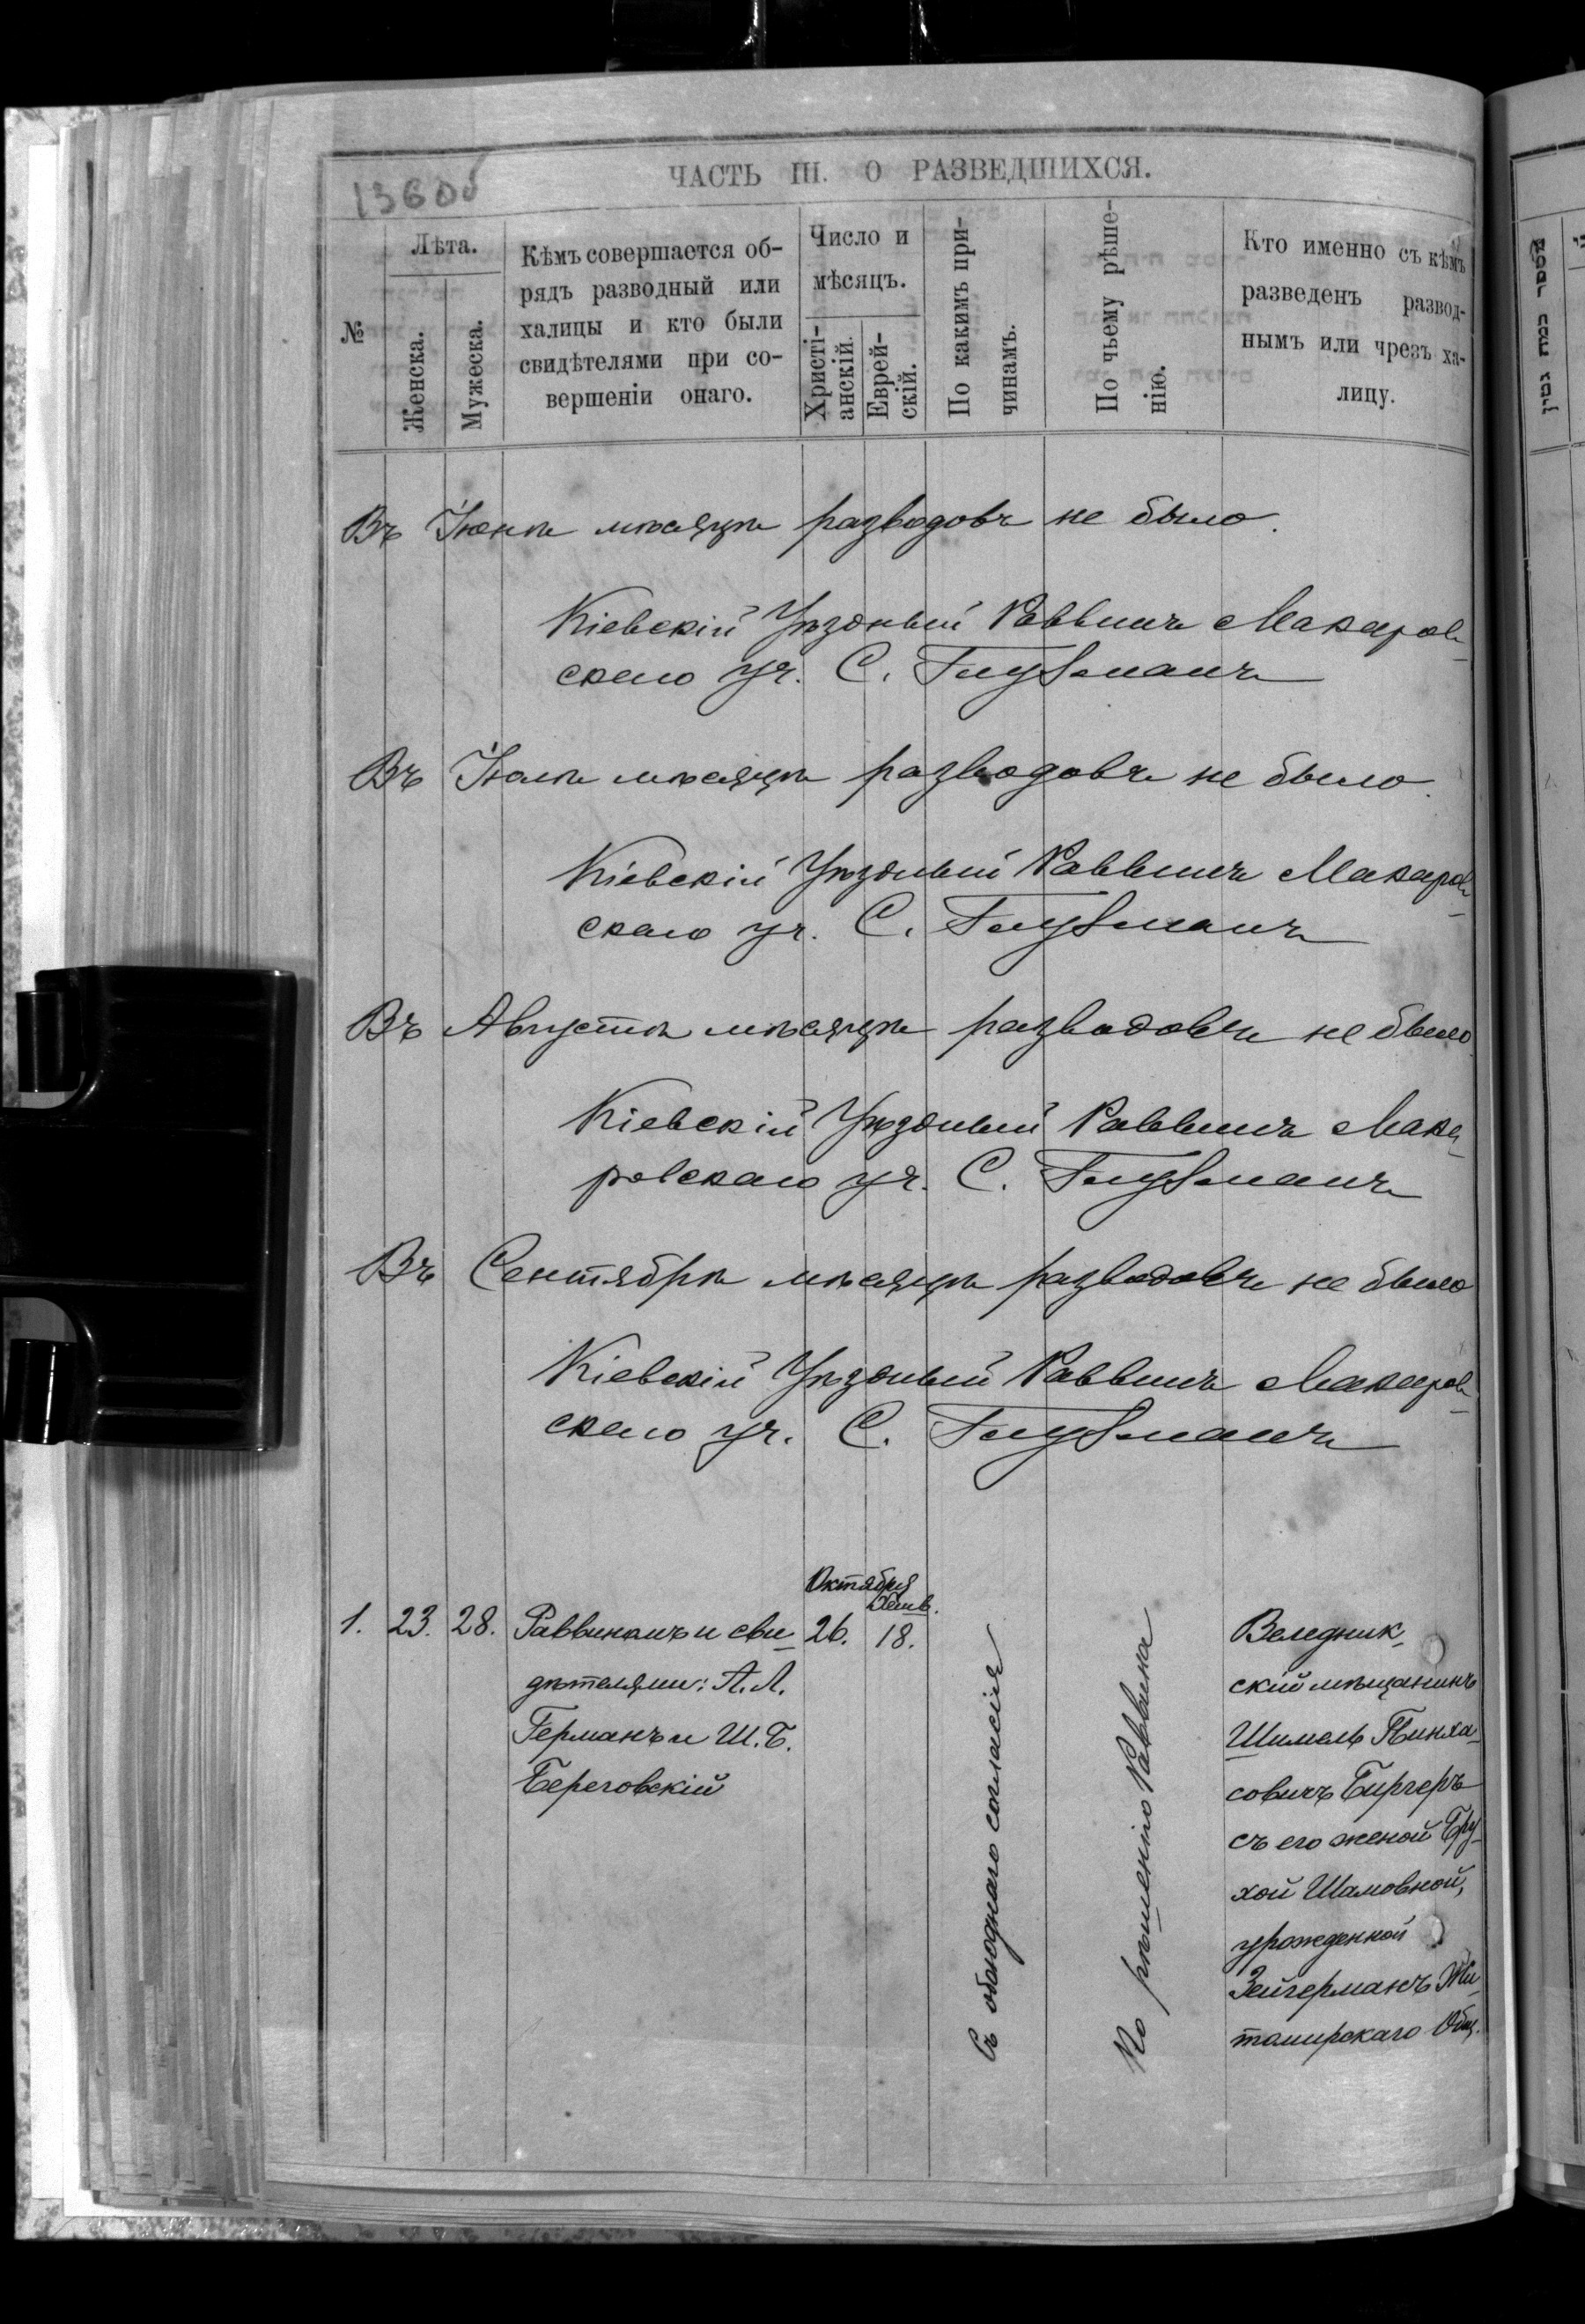 136об
ЧАСТЬ III. О РАЗВЕДШИХСЯ.
№
Лѣта.
Женска.
Мужеска.
Кѣмъ совершается об-
рядъ разводный или
халицы и кто были
свидѣтелями при со-
вершеніи онаго.
Число и
мѣсяцъ.
Христі-
анскій.
Еврей-
скій.
По какимъ при-
чинамъ.
По чьему рѣше-
нію.
Кто именно съ кѣмъ
разведенъ развод-
нымъ или чрезъ ха-
лицу.
Въ Іюнѣ мѣсяцѣ разводовъ не было.
Кіевскій Уѣздный Раввинъ Макаров-
скаго уч. С. Глузманъ
Въ Іюлѣ мѣсяцѣ разводовъ не было.
Кіевскій Уѣздный Раввинъ Макаров-
скаго уч. С. Глузманъ
Въ Августѣ мѣсяцѣ разводовъ не было.
Кіевскій Уѣздный Раввинъ Мака-
ровскаго уч. С. Глузманъ
Въ Сентябрѣ мѣсяцѣ разводовъ не было
Кіевскій Уѣздный Раввинъ Макаров-
скаго уч. С. Глузманъ
Октября
Хешв.
1. 23. 28. Раввиномъ и сви- 26. 18.
дѣтелями: А. Л.
Германъ и Ш. Б.
Береговскій
Съ обоюднаго согласія
По рѣшенію Раввина
Веледник-
скій мѣщанинъ
Шимель Пинха-
совичъ Биргеръ
съ его женой Бру-
хой Шамовной,
урожденной
Зейгерманъ Жи-
томирскаго Общ.
מספר כמה גטין